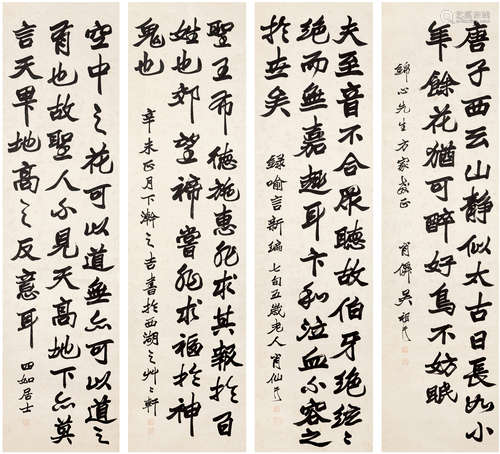 唐子西云山靜似太古日長如小
年餘花猶可醉好鳥不妨眠
先生方家教正 肖僊吳祖
夫至音不合眾聽故伯牙絕絃〻
絕而無嘉趣耳卞和泣血亦容之
於世矣
錄喻言新編 七旬五歲老人肖仙氏
聖王布德施惠非求其報於百
姓也郊望禘嘗非求福於神
鬼也
辛未正月下澣之吉書於西湖之艸之軒
空中之花可以道無亦可以道之
有也故聖人不見天高地下亦莫
言天卑地高之反意耳 四如居士